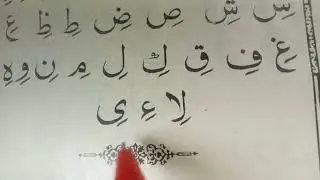 سِ شِ صِ ضِ طِ ظِ عِ
غِ فِ قِ كِ لِ مِ نِ وِ هِ
لاِ ءِ يِ